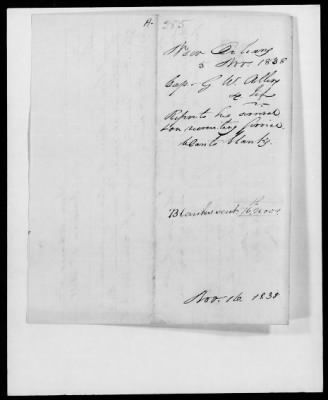 A.
385
New Orleans
3 Nov. 1838
Capt. G. W. Allen
4 Inf
Reports his arrival
on recruiting service.
wants blanks.
Blanks sent 16 Nov.
Nov. 16 1838